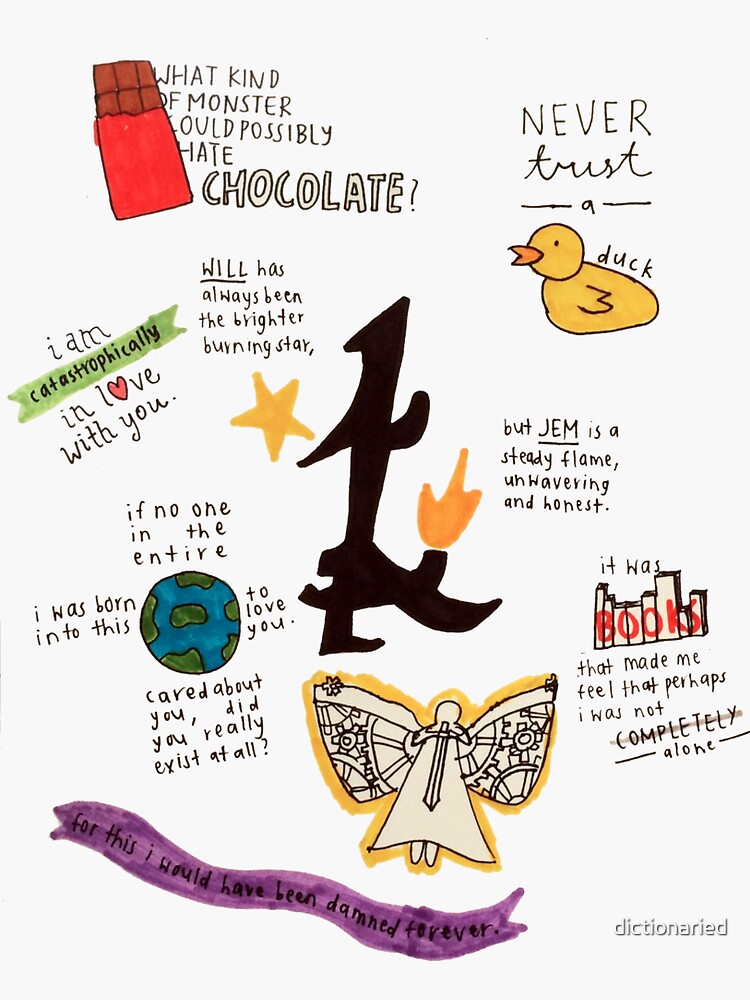 WHAT KIND
OF MONSTER
COULD POSSIBLY
HATE
CHOCOLATE?
NEVER
trust
a
duck
WILL has
always been
the brighter
burning star,
i am
catastrophically
in love
with you.
but JEM is a
steady flame,
unwavering
and honest.
if no one
in the
entire
cared about
you, did
you really
exist at all?
i was born
into this
to
love
you.
it was
BOOKS
that made me
feel that perhaps
i was not
COMPLETELY
alone
for this i would have been damned forever.
dictionaried